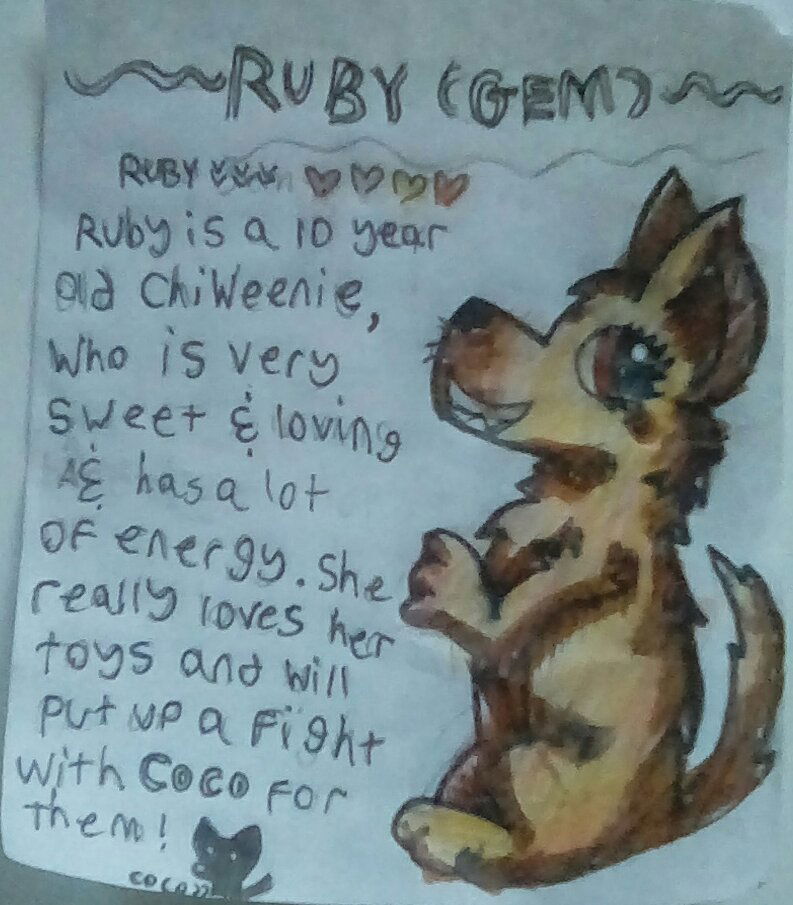 RUBY (GEM)
RUBY
Ruby is a 10 year
old ChiWeenie,
who is very
sweet & loving
& has a lot
OF energy. She
really loves her
toys and will
put up a Fight
with COCO FOR
them!